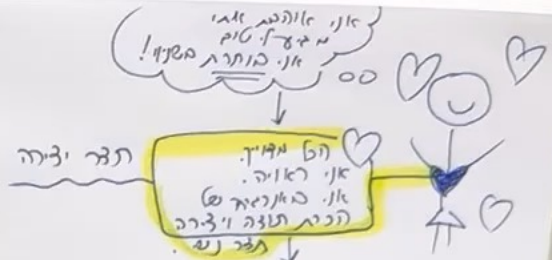 אני אוהבת אותי
מגיע לי טוב
אני בוחרת בשינוי!
הכל מדויק.
אני ראויה.
אני באנרגיה של
הכרת תודה ויצירה
תדר יצירה